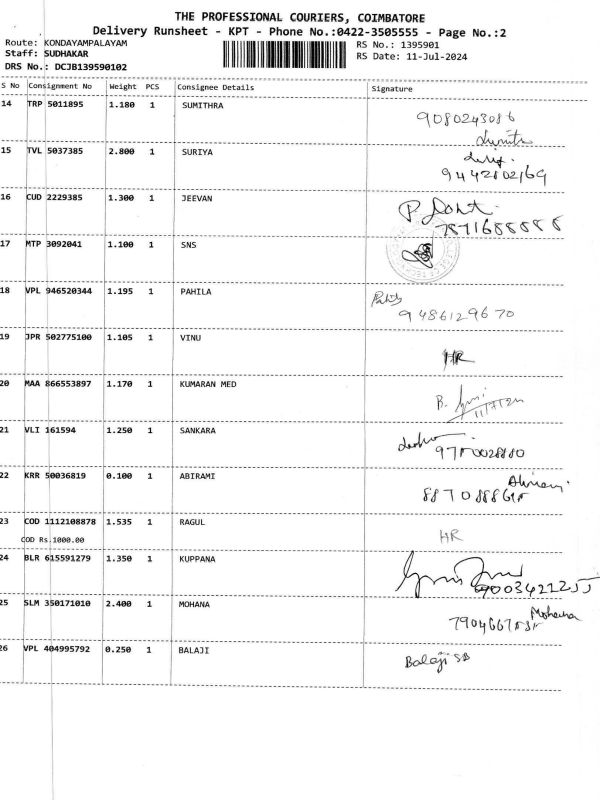 THE PROFESSIONAL COURIERS, COIMBATORE
Delivery Runsheet - KPT - Phone No.:0422-3505555 - Page No.:2
Route: KONDAYAMPALAYAM
Staff: SUDHAKAR
DRS No.: DCJB139590102
RS No.: 1395901
RS Date: 11-Jul-2024
S No Consignment No Weight PCS Consignee Details Signature
14 TRP 5011895 1.180 1 SUMITHRA
9080243086
15 TVL 5037385 2.800 1 SURIYA
16 CUD 2229385 1.300 1 JEEVAN
17 MTP 3092041 1.100 1 SNS
18 VPL 946520344 1.195 1 PAHILA
9486129670
19 JPR 502775100 1.105 1 VINU
HR
20 MAA 866553897 1.170 1 KUMARAN MED
21 VLI 161594 1.250 1 SANKARA
22 KRR 50036819 0.100 1 ABIRAMI
23 COD 1112108878 1.535 1 RAGUL
COD Rs.1000.00
HR
24 BLR 615591279 1.350 1 KUPPANA
25 SLM 350171010 2.400 1 MOHANA
Mohana
26 VPL 404995792 0.250 1 BALAJI
Balaji SB